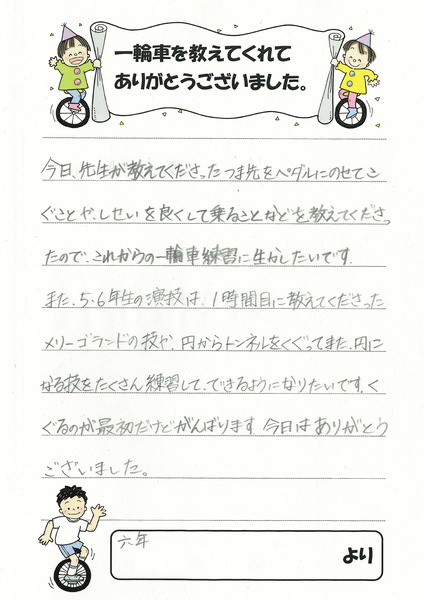 一輪車を教えてくれて
ありがとうございました。
今日、先生が教えてくださったつま先をペダルにのせてこ
ぐことや、しせいを良くして乗ることなどを教えてくださっ
たので、これからの一輪車練習に生かしたいです。
また、5・6年生の演技は、1時間目に教えてくださった
メリーゴランドの技や、円からトンネルをくぐってまた、円に
なる技をたくさん練習して、できるようになりたいです。く
ぐるのが最初だけどがんばります。今日はありがとう
ございました。
六年
より